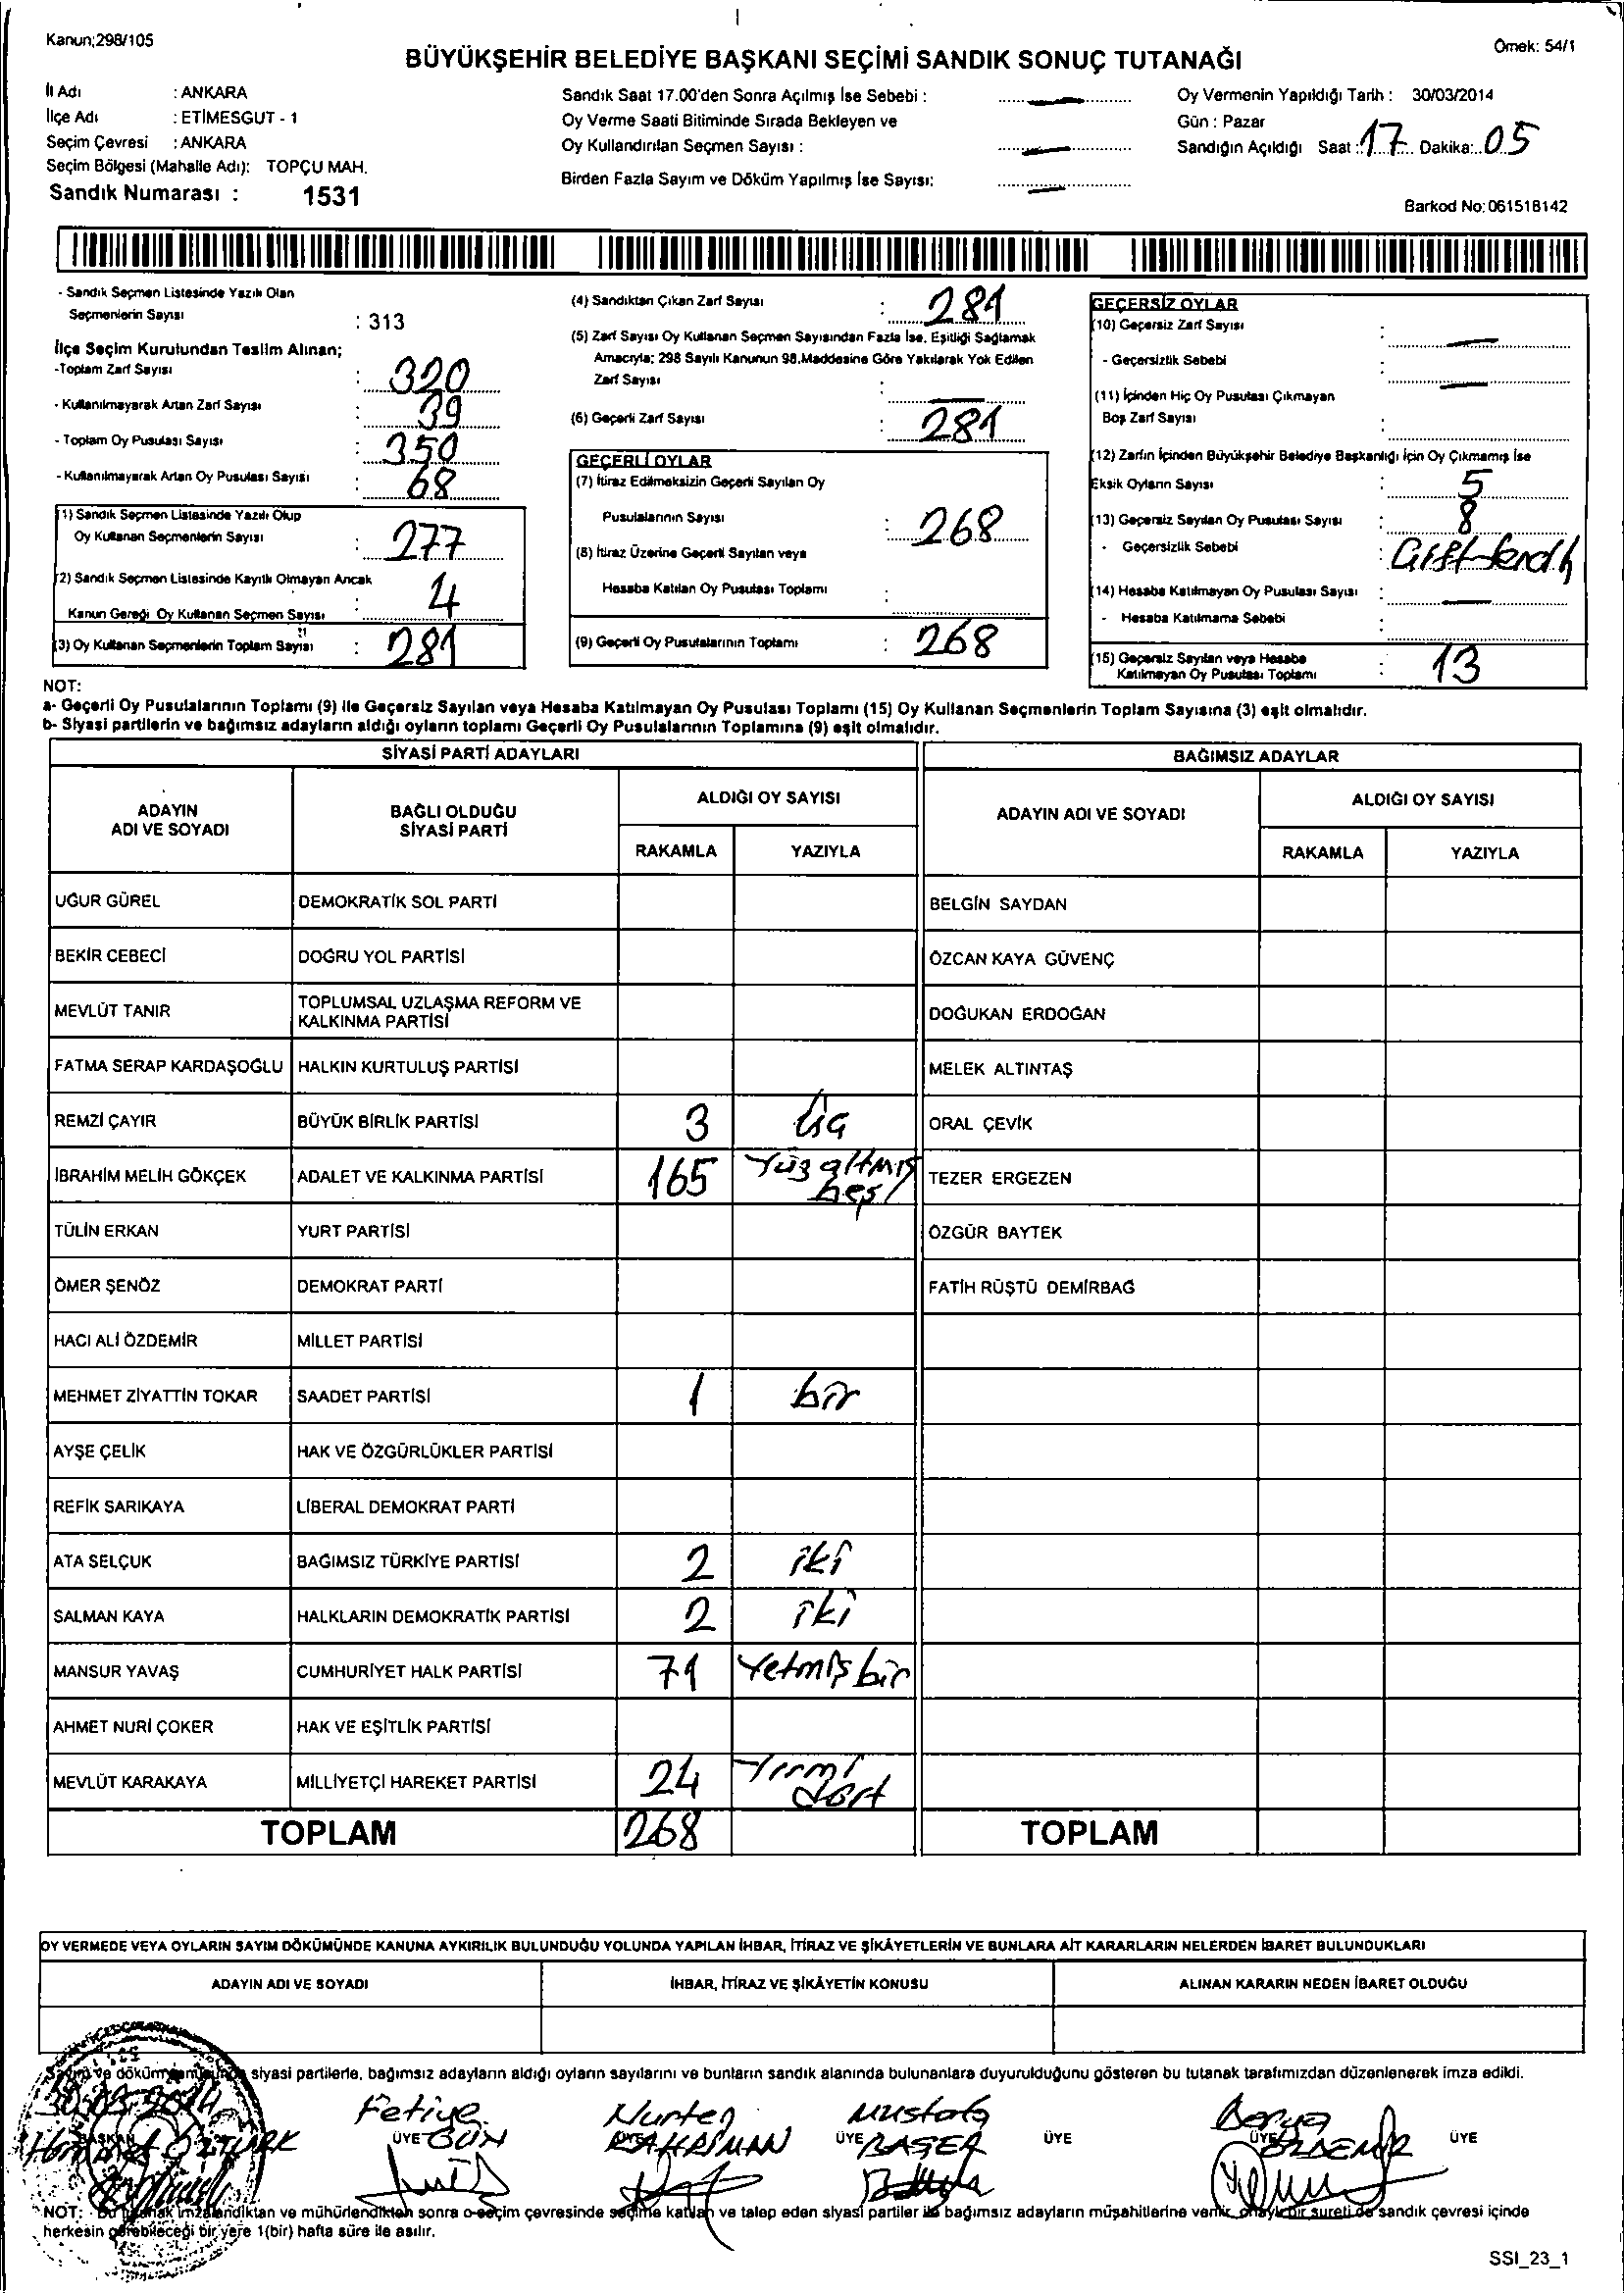 Kanun;298/105
Örnek: 54/1
BÜYÜKŞEHİR BELEDİYE BAŞKANI SEÇİMİ SANDIK SONUÇ TUTANAĞI
İl Adı : ANKARA
İlçe Adı : ETİMESGUT - 1
Seçim Çevresi : ANKARA
Seçim Bölgesi (Mahalle Adı): TOPÇU MAH.
Sandık Numarası : 1531
Sandık Saat 17.00'den Sonra Açılmış İse Sebebi : —
Oy Verme Saati Bitiminde Sırada Bekleyen ve
Oy Kullandırılan Seçmen Sayısı : —
Birden Fazla Sayım ve Döküm Yapılmış İse Sayısı: —
Oy Vermenin Yapıldığı Tarih : 30/03/2014
Gün : Pazar
Sandığın Açıldığı Saat : 17 Dakika: 05
Barkod No:061518142
- Sandık Seçmen Listesinde Yazılı Olan
Seçmenlerin Sayısı : 313
İlçe Seçim Kurulundan Teslim Alınan;
-Toplam Zarf Sayısı : 320
- Kullanılmayarak Artan Zarf Sayısı : 39
- Toplam Oy Pusulası Sayısı : 350
- Kullanılmayarak Artan Oy Pusulası Sayısı : 68
(1) Sandık Seçmen Listesinde Yazılı Olup
Oy Kullanan Seçmenlerin Sayısı : 277
(2) Sandık Seçmen Listesinde Kayıtlı Olmayan Ancak
Kanun Gereği Oy Kullanan Seçmen Sayısı : 4
(3) Oy Kullanan Seçmenlerin Toplam Sayısı : 281
(4) Sandıktan Çıkan Zarf Sayısı : 281
(5) Zarf Sayısı Oy Kullanan Seçmen Sayısından Fazla İse, Eşitliği Sağlamak
Amacıyla; 298 Sayılı Kanunun 98.Maddesine Göre Yakılarak Yok Edilen
Zarf Sayısı : —
(6) Geçerli Zarf Sayısı : 281
GEÇERLİ OYLAR
(7) İtiraz Edilmeksizin Geçerli Sayılan Oy
Pusulalarının Sayısı : 268
(8) İtiraz Üzerine Geçerli Sayılan veya
Hesaba Katılan Oy Pusulası Toplamı :
(9) Geçerli Oy Pusulalarının Toplamı : 268
GEÇERSİZ OYLAR
(10) Geçersiz Zarf Sayısı : —
- Geçersizlik Sebebi : —
(11) İçinden Hiç Oy Pusulası Çıkmayan
Boş Zarf Sayısı :
(12) Zarfın İçinden Büyükşehir Belediye Başkanlığı İçin Oy Çıkmamış İse
Eksik Oyların Sayısı : 5
(13) Geçersiz Sayılan Oy Pusulası Sayısı : 8
- Geçersizlik Sebebi :
(14) Hesaba Katılmayan Oy Pusulası Sayısı : —
- Hesaba Katılmama Sebebi :
(15) Geçersiz Sayılan veya Hesaba
Katılmayan Oy Pusulası Toplamı : 13
NOT:
a- Geçerli Oy Pusulalarının Toplamı (9) ile Geçersiz Sayılan veya Hesaba Katılmayan Oy Pusulası Toplamı (15) Oy Kullanan Seçmenlerin Toplam Sayısına (3) eşit olmalıdır.
b- Siyasi partilerin ve bağımsız adayların aldığı oyların toplamı Geçerli Oy Pusulalarının Toplamına (9) eşit olmalıdır.
SİYASİ PARTİ ADAYLARI BAĞIMSIZ ADAYLAR
ADAYIN ADI VE SOYADI BAĞLI OLDUĞU SİYASİ PARTİ ALDIĞI OY SAYISI ADAYIN ADI VE SOYADI ALDIĞI OY SAYISI
RAKAMLA YAZIYLA RAKAMLA YAZIYLA
UĞUR GÜREL DEMOKRATİK SOL PARTİ BELGİN SAYDAN
BEKİR CEBECİ DOĞRU YOL PARTİSİ ÖZCAN KAYA GÜVENÇ
MEVLÜT TANIR TOPLUMSAL UZLAŞMA REFORM VE KALKINMA PARTİSİ DOĞUKAN ERDOĞAN
FATMA SERAP KARDAŞOĞLU HALKIN KURTULUŞ PARTİSİ MELEK ALTINTAŞ
REMZİ ÇAYIR BÜYÜK BİRLİK PARTİSİ 3 üç ORAL ÇEVİK
İBRAHİM MELİH GÖKÇEK ADALET VE KALKINMA PARTİSİ 165 Yüz altmış beş TEZER ERGEZEN
TÜLİN ERKAN YURT PARTİSİ ÖZGÜR BAYTEK
ÖMER ŞENÖZ DEMOKRAT PARTİ FATİH RÜŞTÜ DEMİRBAĞ
HACI ALİ ÖZDEMİR MİLLET PARTİSİ
MEHMET ZİYATTİN TOKAR SAADET PARTİSİ 1 bir
AYŞE ÇELİK HAK VE ÖZGÜRLÜKLER PARTİSİ
REFİK SARIKAYA LİBERAL DEMOKRAT PARTİ
ATA SELÇUK BAĞIMSIZ TÜRKİYE PARTİSİ 2 iki
SALMAN KAYA HALKLARIN DEMOKRATİK PARTİSİ 2 iki
MANSUR YAVAŞ CUMHURİYET HALK PARTİSİ 71 Yetmiş bir
AHMET NURİ ÇOKER HAK VE EŞİTLİK PARTİSİ
MEVLÜT KARAKAYA MİLLİYETÇİ HAREKET PARTİSİ 24 Yirmi dört
TOPLAM 268 TOPLAM
OY VERMEDE VEYA OYLARIN SAYIM DÖKÜMÜNDE KANUNA AYKIRILIK BULUNDUĞU YOLUNDA YAPILAN İHBAR, İTİRAZ VE ŞİKÂYETLERİN VE BUNLARA AİT KARARLARIN NELERDEN İBARET BULUNDUKLARI
ADAYIN ADI VE SOYADI İHBAR, İTİRAZ VE ŞİKÂYETİN KONUSU ALINAN KARARIN NEDEN İBARET OLDUĞU
siyasi partilerle, bağımsız adayların aldığı oyların sayılarını ve bunların sandık alanında bulunanlara duyurulduğunu gösteren bu tutanak tarafımızdan düzenlenerek imza edildi.
30.03.2014 Fetiye Nurten Mustafa
BAŞKAN ÜYE GÜN ÜYE KAHRİMAN ÜYE BAŞER ÜYE ÜYE ÖZDEMİR ÜYE
ÖZTÜRK
NOT: Bu tutanak imzalandıktan ve mühürlendikten sonra o seçim çevresinde seçime katılan ve talep eden siyasi partiler ile bağımsız adayların müşahitlerine verilir, onaylı bir sureti de sandık çevresi içinde
herkesin görebileceği bir yere 1(bir) hafta süre ile asılır.
SSI_23_1